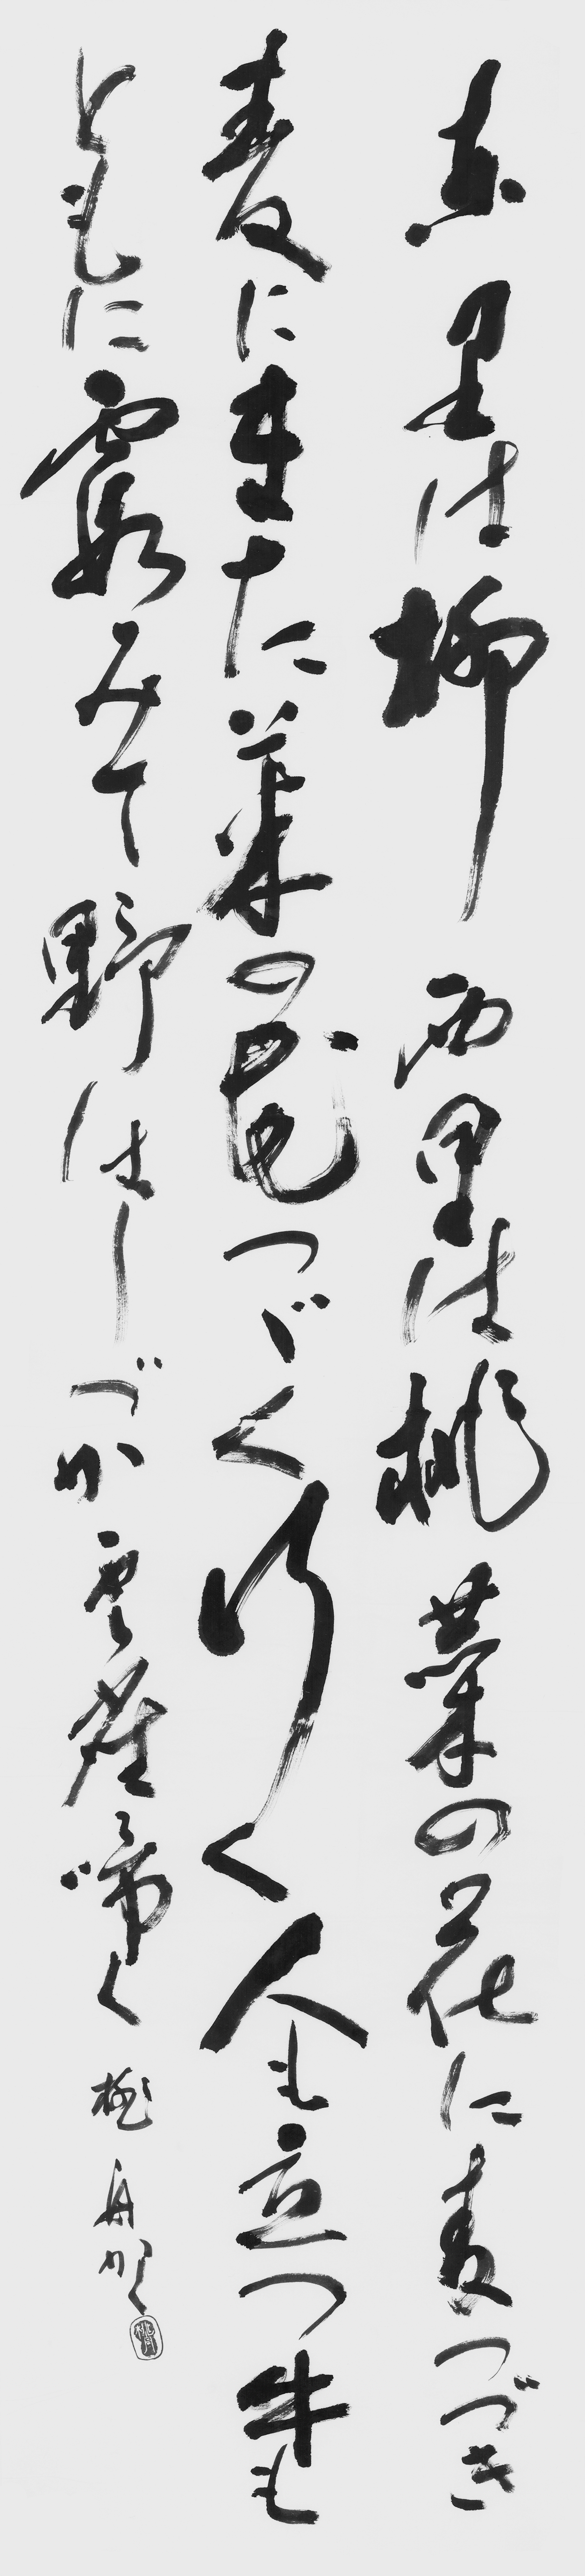 東里は柳西里は桃菜の花に麦つづき
麦にまた菜の花つづく行く人も立つ牛も
ともに霞みて野はしづか雲雀啼く
舟かく